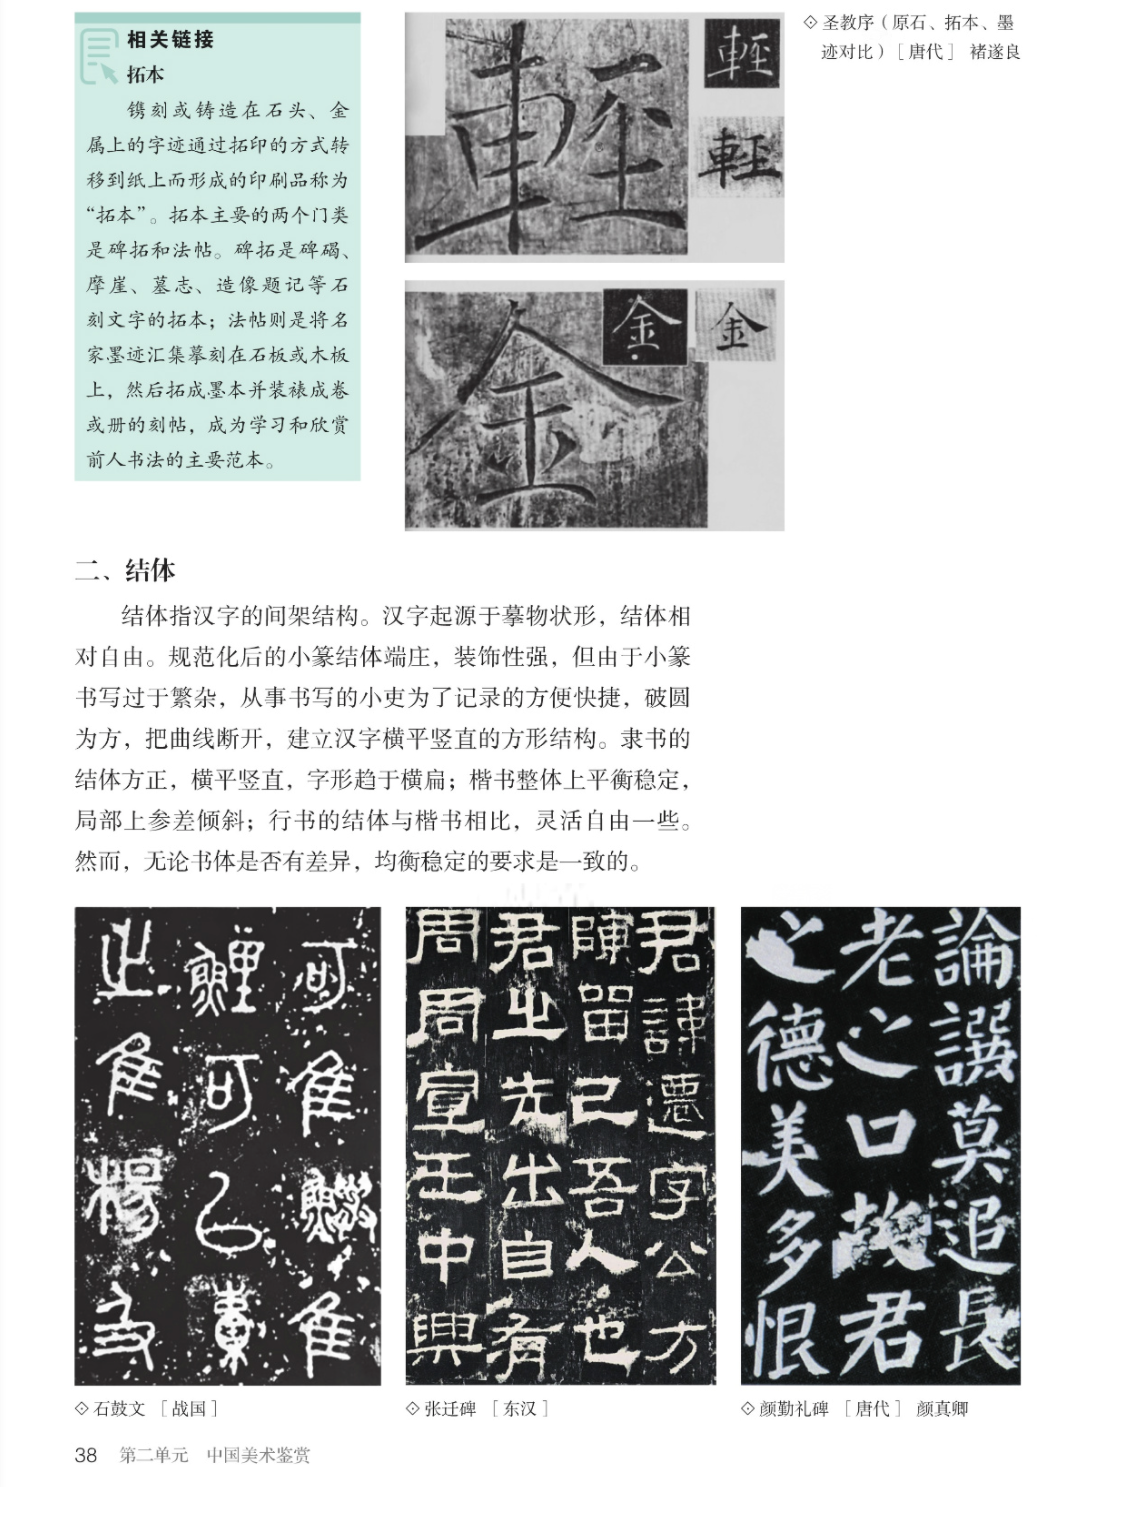 相关链接
拓本
镌刻或铸造在石头、金
属上的字迹通过拓印的方式转
移到纸上而形成的印刷品称为
“拓本”。拓本主要的两个门类
是碑拓和法帖。碑拓是碑碣、
摩崖、墓志、造像题记等石
刻文字的拓本；法帖则是将名
家墨迹汇集摹刻在石板或木板
上，然后拓成墨本并装裱成卷
或册的刻帖，成为学习和欣赏
前人书法的主要范本。
輕
輕
輕
金
金
金
◇圣教序（原石、拓本、墨
迹对比）［唐代］ 褚遂良
二、结体
结体指汉字的间架结构。汉字起源于摹物状形，结体相
对自由。规范化后的小篆结体端庄，装饰性强，但由于小篆
书写过于繁杂，从事书写的小吏为了记录的方便快捷，破圆
为方，把曲线断开，建立汉字横平竖直的方形结构。隶书的
结体方正，横平竖直，字形趋于横扁；楷书整体上平衡稳定，
局部上参差倾斜；行书的结体与楷书相比，灵活自由一些。
然而，无论书体是否有差异，均衡稳定的要求是一致的。
可隹隹
鯉可己
隹楊及
君諱遷字公方
陳留己吾人也
君之先出自有
周周宣王中興
論譔莫追長
老之口故君
之德美多恨
◇石鼓文 ［战国］
◇张迁碑 ［东汉］
◇颜勤礼碑 ［唐代］ 颜真卿
38 第二单元 中国美术鉴赏